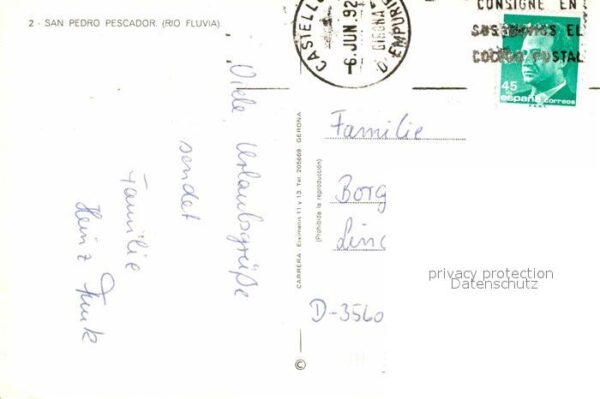 2 - SAN PEDRO PESCADOR. (RIO FLUVIA).
Viele Urlaubsgrüße
sendet
Familie
Heinz Funk
CARRERA - Eiximenis 11 y 13. Tel. 205669. GERONA
(Prohibida la reproducción)
©
CASTELLO D'EMPURIES
-6.JUN.92
GIRONA
CONSIGNE EN
SUS ENVIOS EL
CODIGO POSTAL
45
españa correos
Familie
Borg
Linc
D-3560
privacy protection
Datenschutz